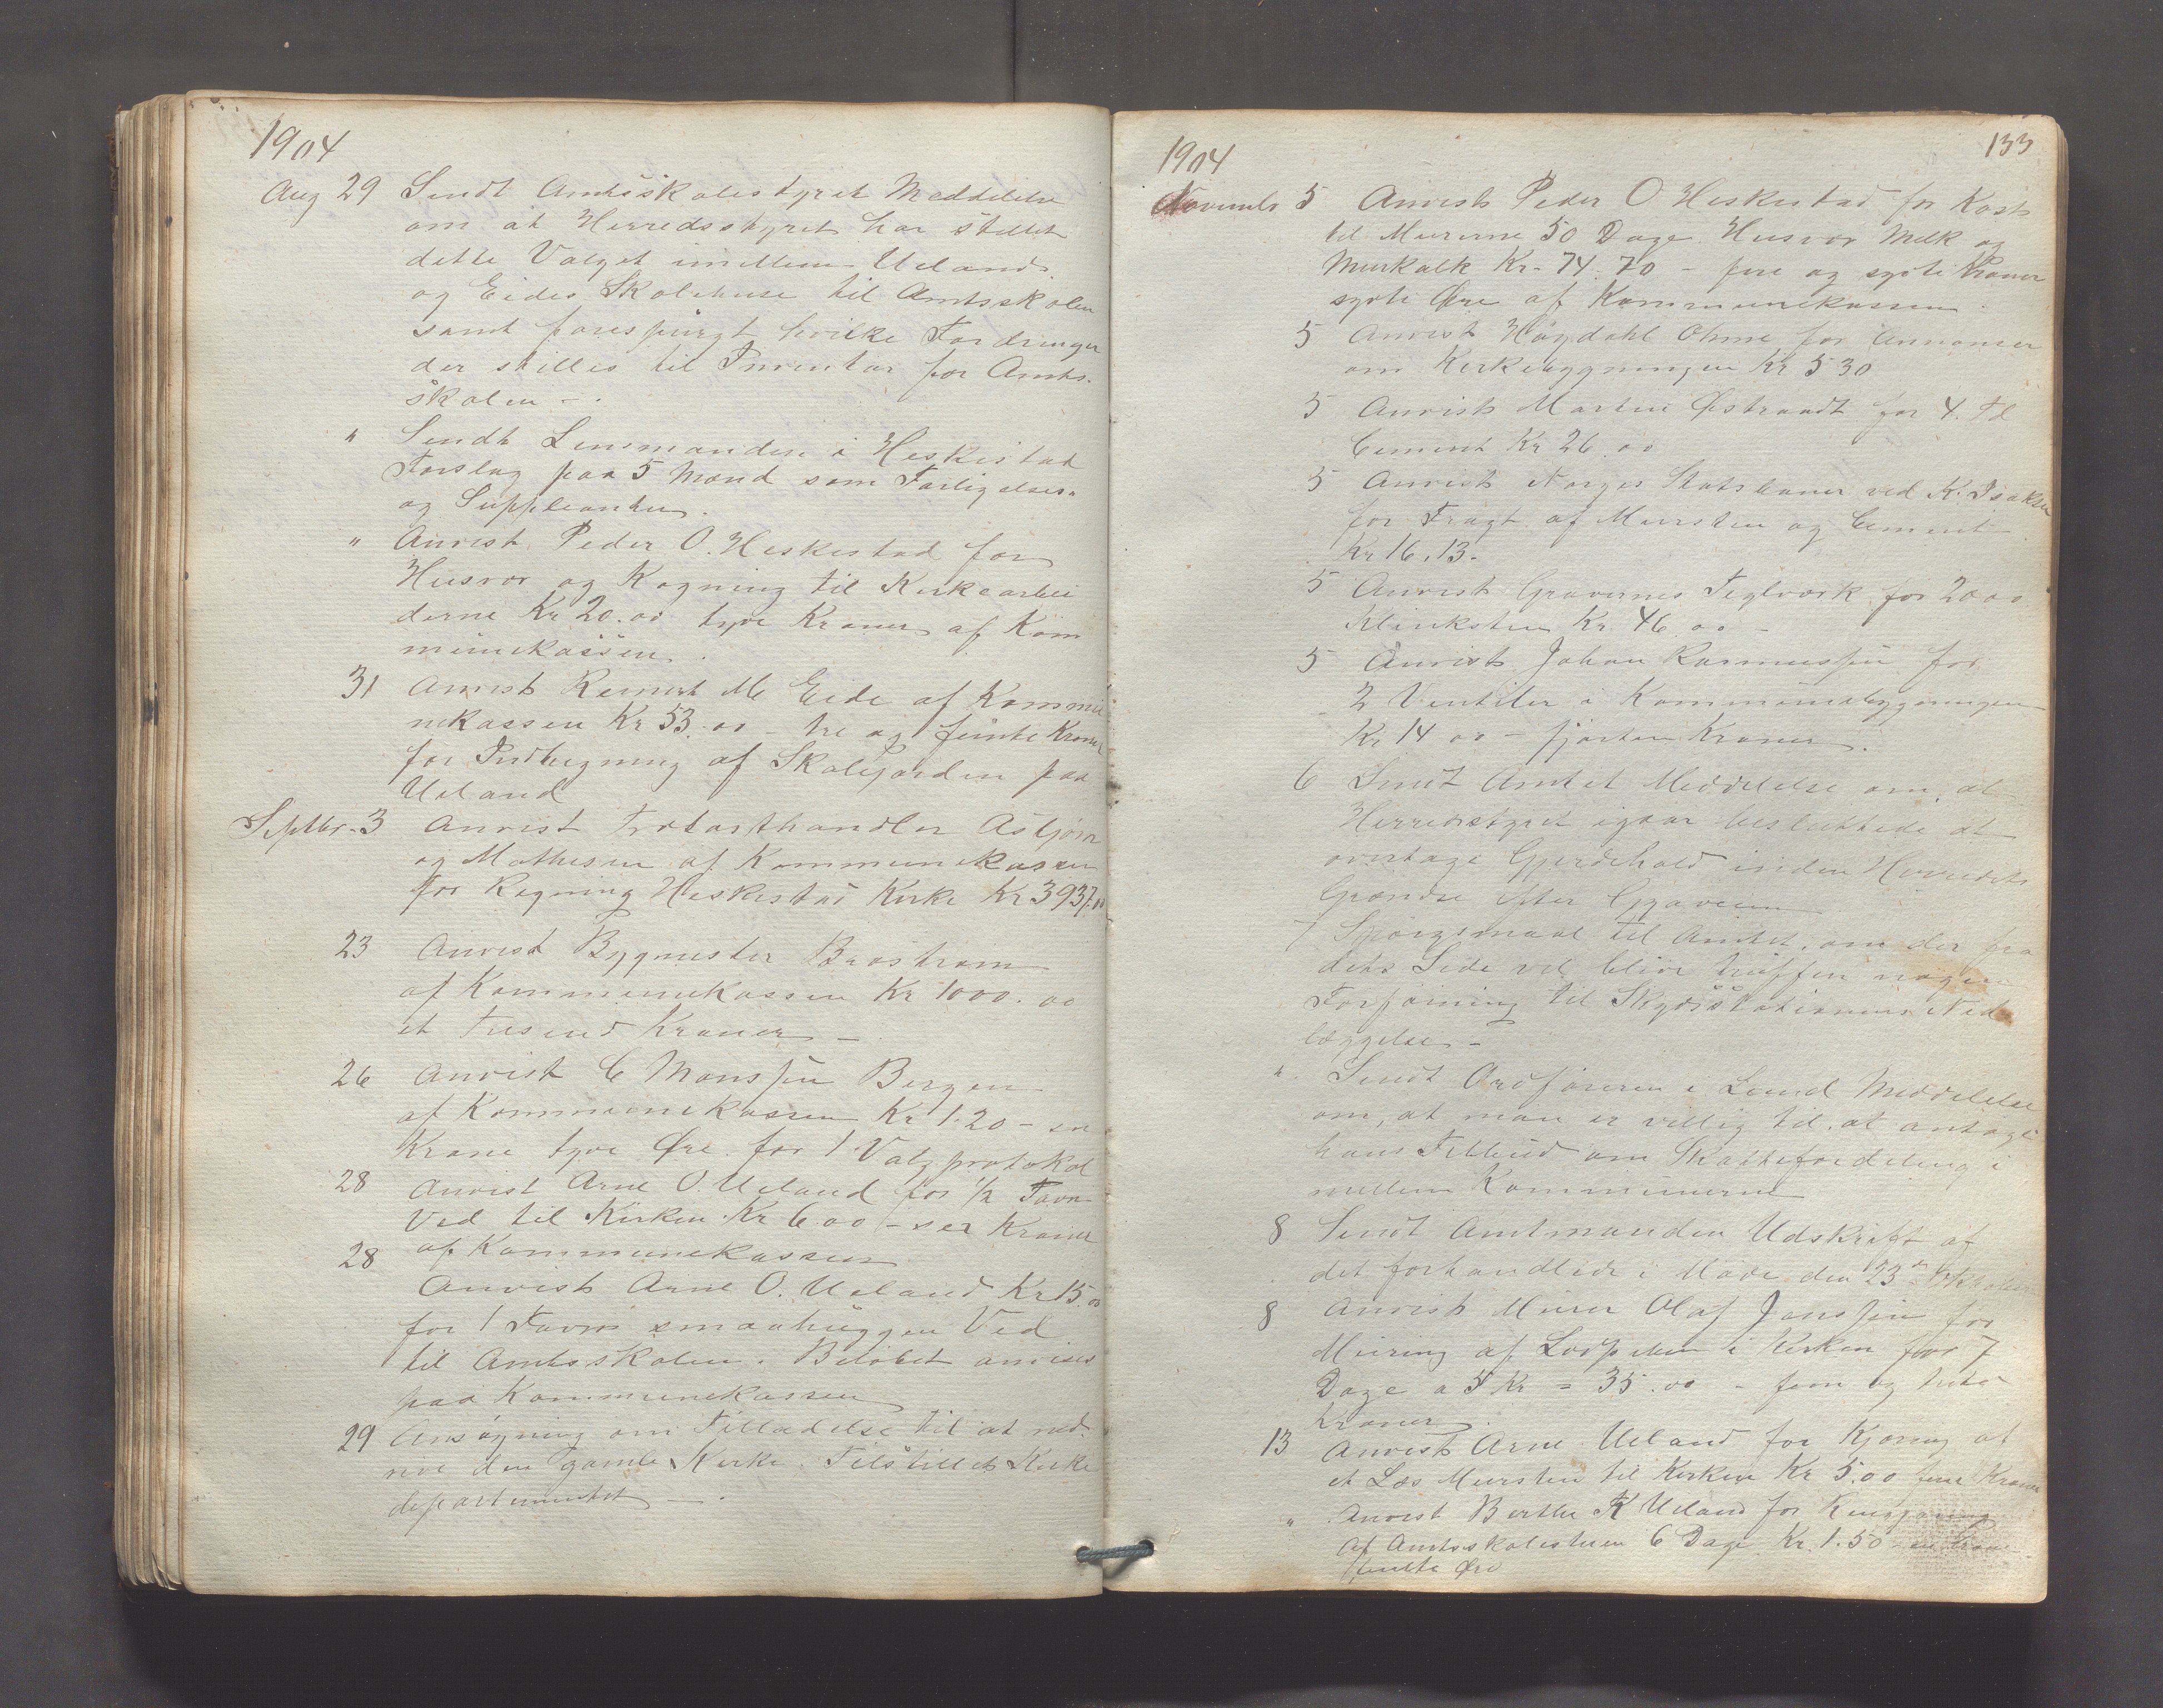 1904
Aug 29 Sendt Amtsskolestyret Meddelelse
om at Herredsstyret har stillet
dette Valget imellem Ueland
og Eides Skolehuse til Amtsskolen
samt forespurgt hvilke Fordringer
der stilles til Inventar for Amts-
skolen -
" Sendt Lensmanden i Heskestad
Forslag paa 5 Mænd som Forligelses-
og Suppleanter.
" Anvist Peder O. Heskestad for
Husvær og Kogning til Kirkearbei
derne Kr 20.00 tyve Kroner af Kom
munekassen.
31 Anvist Reinert M Eide af Kommu
nekassen Kr 53.00 - tre og femti Kroner
for Indhegning af Skolejorden paa
Ueland
Septbr. 3 Anvist Trælasthandler Asbjørn
og Mathesen af Kommunekassen
for Regning Heskestad Kirke Kr 3937.00
23 Anvist Bygmester Brostrøm
af Kommunekassen Kr 1000.00
et Tusend Kroner -
26 Anvist C Monssen Bergen
af Kommunekassen Kr 1.20 - en
Krone tyve Øre for 1 Valgprotokol
28 Anvist Arne O. Ueland for 1/2 Favn
Ved til Kirken Kr 6.00 - sex Kroner
af Kommunekassen
28 Anvist Arne O. Ueland Kr 15.00
for 1 Favn smaahuggen Ved
til Amtsskolen. Beløbet anvises
paa Kommunekassen
29 Ansøgning om Tilladelse til at ned-
rive den gamle Kirke Tilstillet Kirke
departementet -.
1904
133
November 5 Anvist Peder O Heskestad for Kost
til Murerne 50 Dage Husvær Melk og
Murkalk Kr. 74.70 - fire og sytti Kroner
sytti Øre af Kommunekassen.
5 Anvist Høydahl Ohme for Annoncer
om Kirkebygningen Kr 5 30
5 Anvist Martin Østraadt for 4. Td
Cement Kr 26.00
5 Anvist Norges Statsbaner ved K. Isaksen
for Fragt af Mursten og Cement
Kr 16.13.
5 Anvist Gravernes Teglværk for 2000
Klinksten Kr. 46.00 -
5 Anvist Johan Rasmussen for
2 Ventiler i Kommunebygningen
Kr 14 00 - fjorten Kroner.
6 Sendt Amtet Meddelelse om, at
Herredsstyret igaar besluttede at
overtage Gjerdehold inden Herredets
Grændse efter
7 Spørgsmaal til Amtet, om der fra
dets Side vil blive truffen nogen
Forføining til Skydsstationens Ned
læggelse -
" Sendt Ordføreren i Lund Meddelelse
om, at man er villig til at antage
hans Tilbud om Skattefordeling i
mellem Kommunerne
8 Sendt Amtmanden Udskrift af
det forhandlede i Møde den 23de
8 Anvist Murer Olaf Janssen for
Muring af i Kirken for 7
Dage a 5 Kr = 35.00 - fem og tretti
Kroner.
13 Anvist Arne Ueland for Kjøring af
et Læs Mursten til Kirken Kr 5.00 fem Kroner
" Anvist Berthe K Ueland for Rengjøring
af Amtsskolestuen 6 Dage Kr. 1.50 en Krone
femti Øre